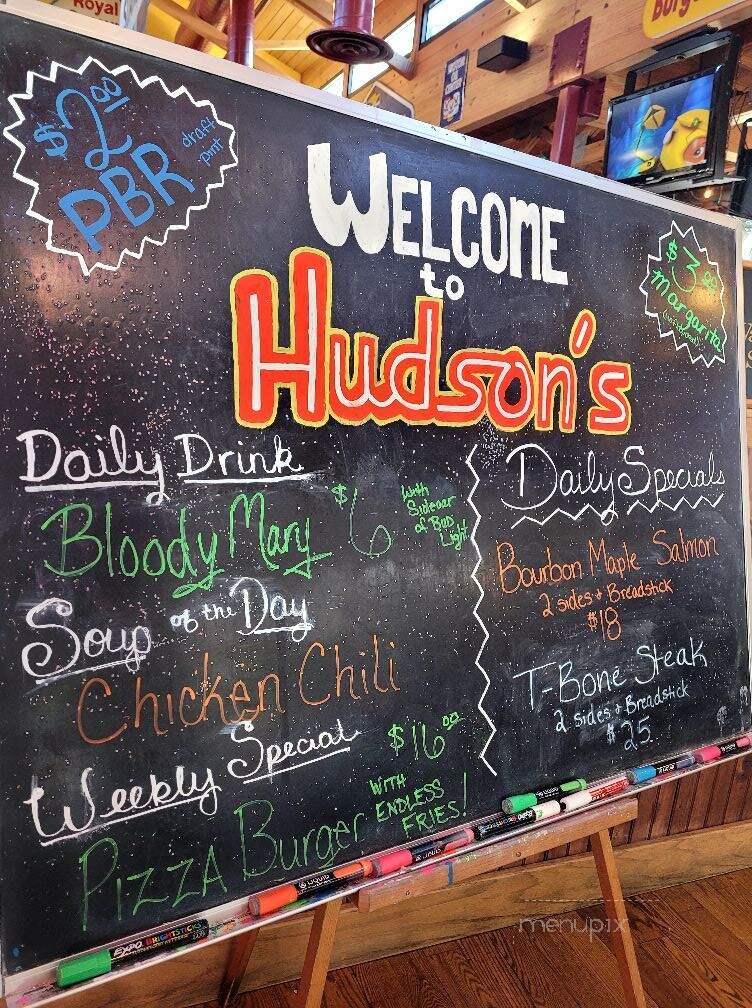 Royal
Burge
$2.00
PBR
draft
pint
WELCOME
to
Hudson's
$3.00
margarita
Daily Drink
Bloody Mary $6
With
Sidecar
of Bud
Light
Soup of the Day
Chicken Chili
Weekly Special
$16.00
PIZZA Burger
WITH
ENDLESS
FRIES!
Daily Specials
Bourbon Maple Salmon
2 sides + Breadstick
$18
T-Bone Steak
2 sides + Breadstick
$25
EXPO BRIGHTSTICKS
LIQUID
LIQUID
menupix